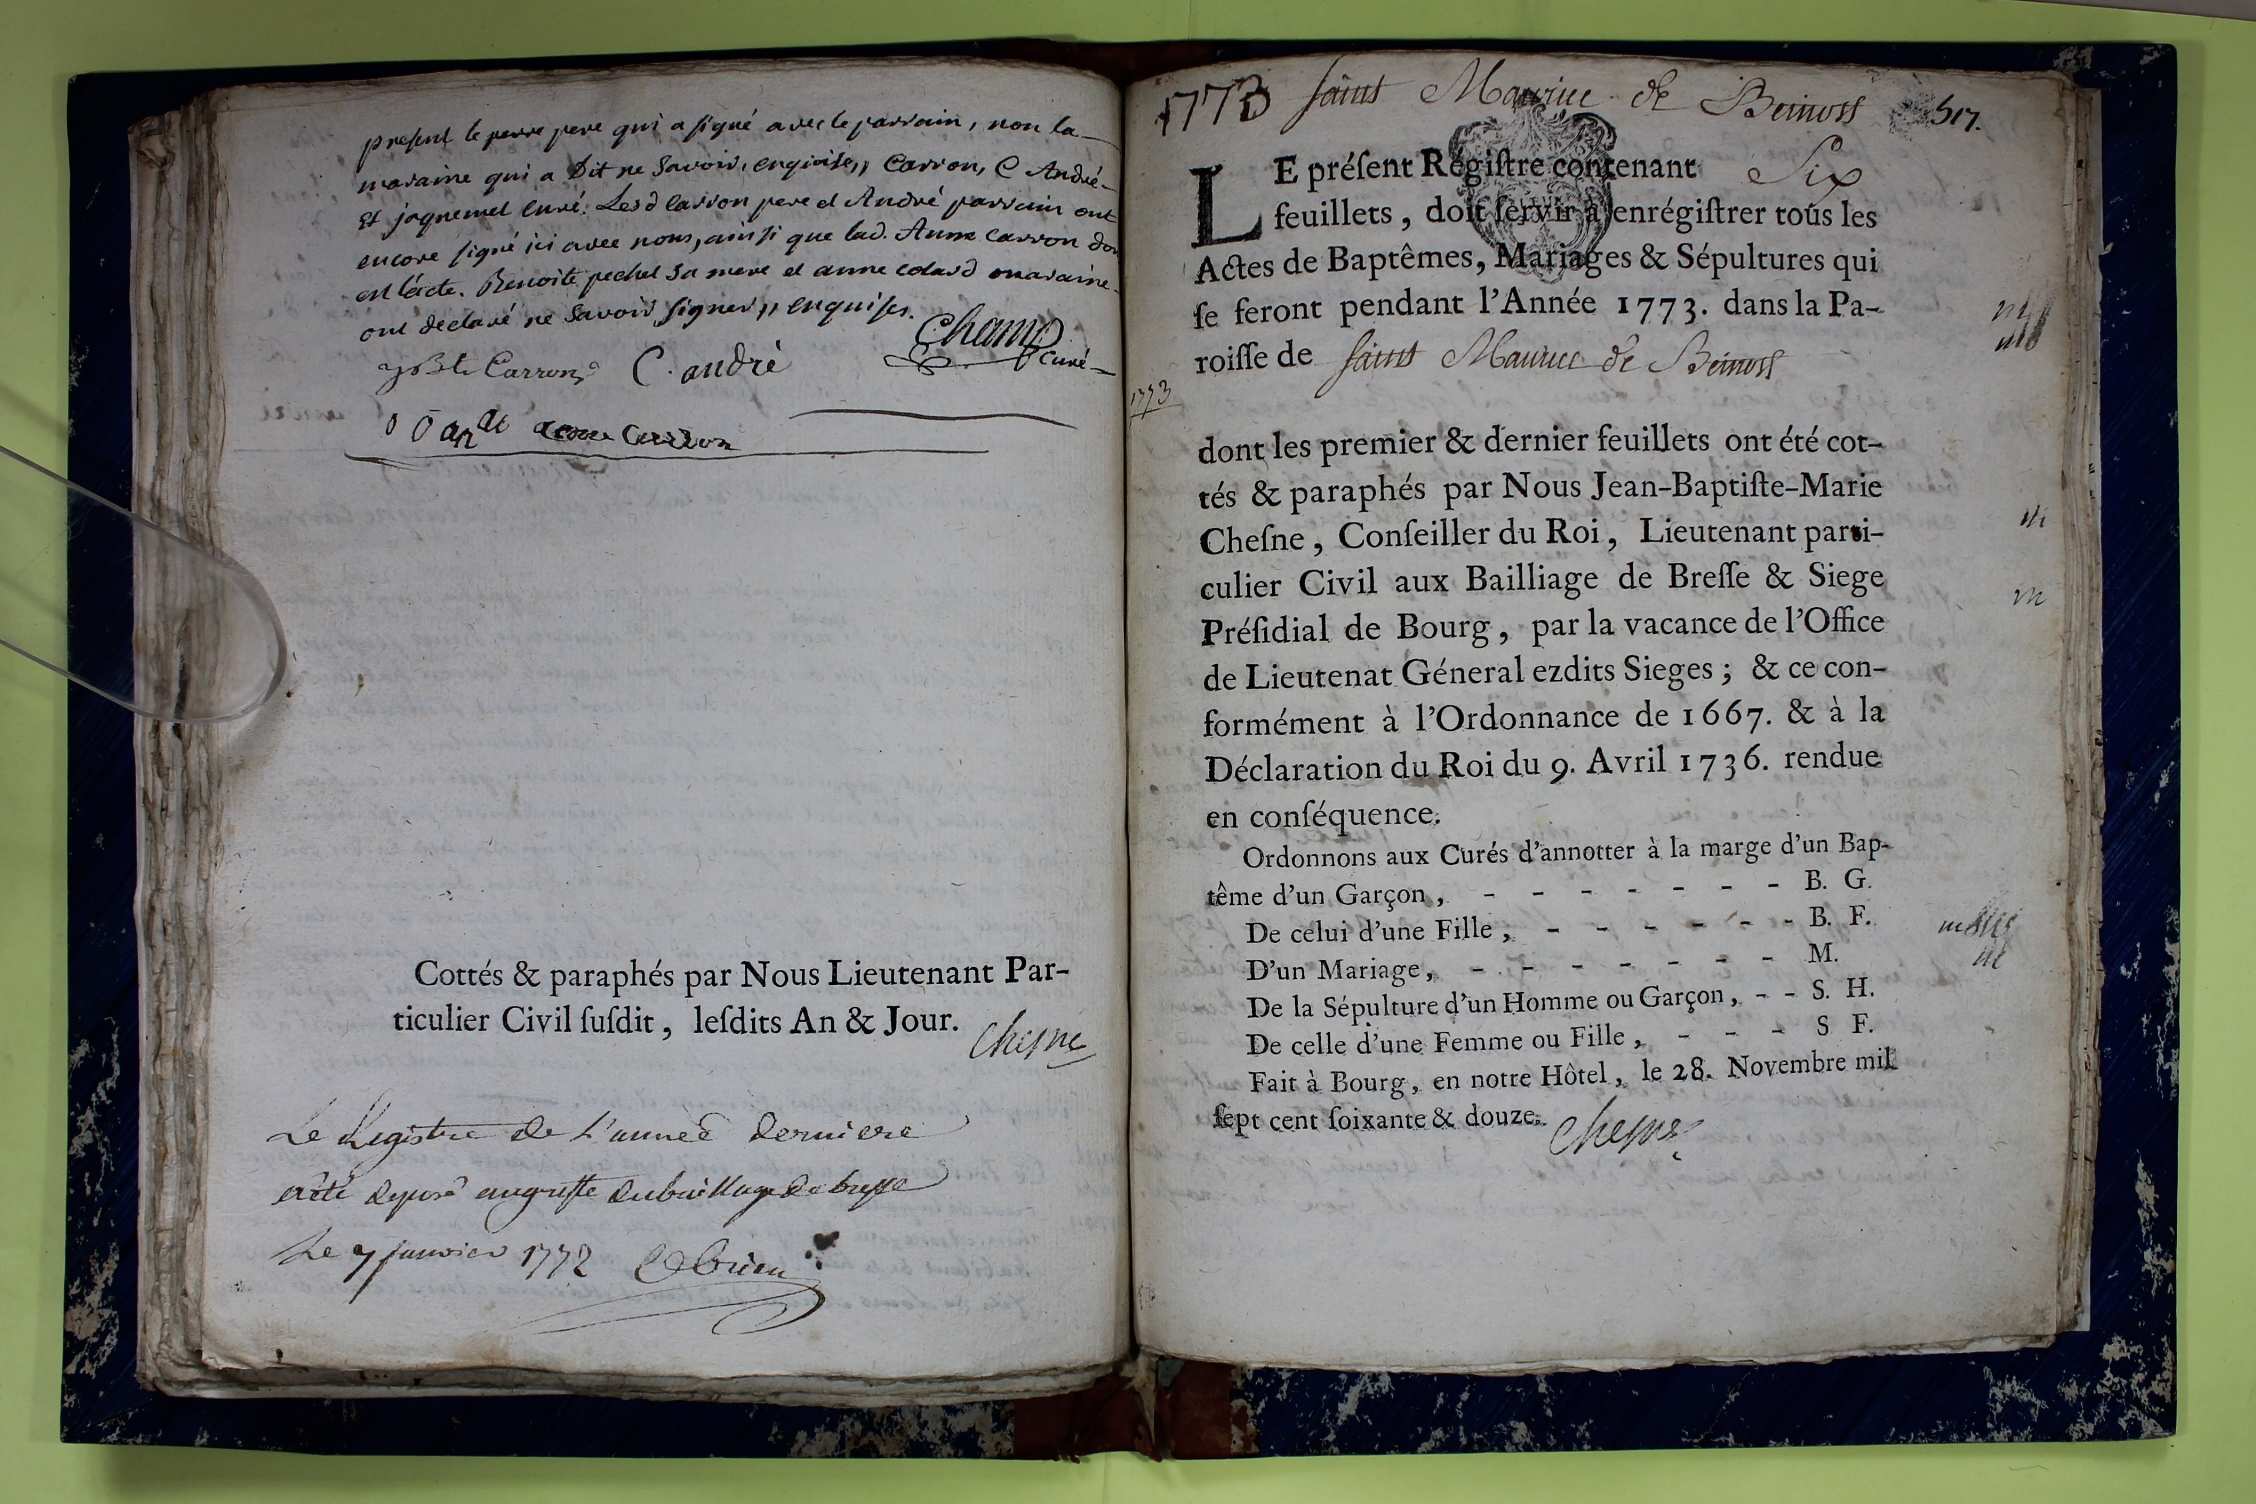 present le perre pere qui a signé avec le parrain, non la
maraine qui a Dit ne savoir, enquise,, Carron, C André
Et jaquemet curé. Lesd Carron pere et André parrain ont
encore signé ici avec nous, ainsi que lad. Anne Carron dont
est l'acte. Benoite pechet sa mere et anne colard maraine
ont declaré ne savoir signer,, enquises.
Carron C. andré Champ curé
anne Carron
Cottés & paraphés par Nous Lieutenant Par-
ticulier Civil ſuſdit, leſdits An & Jour.
Chesne
Le Registre de L'année derniere
a été deposé au greffe du bailliage de bresse
Le 7 janvier 1772
1773 saint Maurice de Beinost 517.
LE préſent Régiſtre contenant Six
feuillets, doit ſervir à enrégiſtrer tous les
Actes de Baptêmes, Mariages & Sépultures qui
ſe feront pendant l'Année 1773. dans la Pa-
roiſſe de saint Maurice de Beinost
1773
dont les premier & dernier feuillets ont été cot-
tés & paraphés par Nous Jean-Baptiſte-Marie
Cheſne, Conſeiller du Roi, Lieutenant parti-
culier Civil aux Bailliage de Breſſe & Siege
Préſidial de Bourg, par la vacance de l'Office
de Lieutenat Géneral ezdits Sieges; & ce con-
formément à l'Ordonnance de 1667. & à la
Déclaration du Roi du 9. Avril 1736. rendue
en conſéquence.
Ordonnons aux Curés d'annotter à la marge d'un Bap-
tême d'un Garçon, - - - - - - - B. G.
De celui d'une Fille, - - - - - - B. F.
D'un Mariage, - - - - - - - M.
De la Sépulture d'un Homme ou Garçon, - - S. H.
De celle d'une Femme ou Fille, - - - S F.
Fait à Bourg, en notre Hôtel, le 28. Novembre mil
ſept cent ſoixante & douze.
Chesne